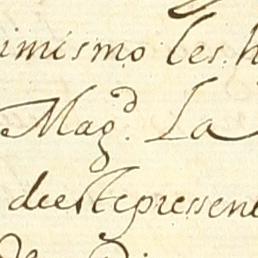 imismo les h
Mag.d La
deeste pressene